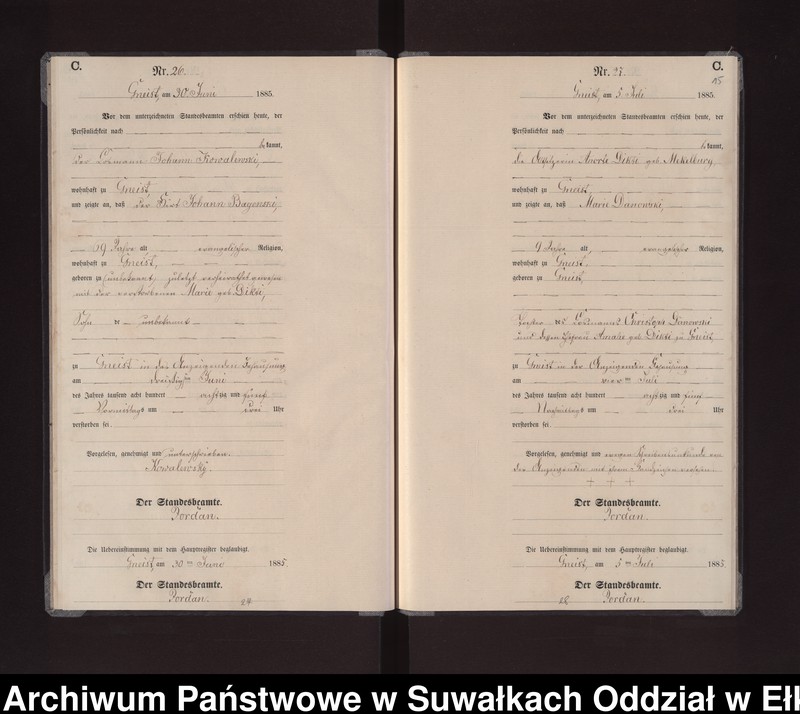 C.
Nr. 26.
Gneist, am 30 Juni 1885.
Vor dem unterzeichneten Standesbeamten erschien heute, der
Persönlichkeit nach
bekannt,
der Losmann Johann Kowalewski,
wohnhaft zu Gneist,
und zeigte an, daß der Hirt Johann
69 Jahre alt evangelischer Religion,
wohnhaft zu Gneist,
geboren zu unbekannt, zuletzt verheirathet gewesen
mit der verstorbenen Marie geb. Dikti,
Sohn de unbekannt
zu Gneist in der Anzeigenden Behausung
am dreißigsten Juni
des Jahres tausend acht hundert achtzig und fünf
Vormittags um drei Uhr
verstorben sei
Vorgelesen, genehmigt und unterschrieben.
Kowalewski.
Der Standesbeamte.
Jordan.
Die Uebereinstimmung mit dem Hauptregister beglaubigt.
Gneist, am 30 ten Juni 1885.
Der Standesbeamte.
Jordan.
C.
Nr. 27.
15
Gneist, am 5 Juli 1885.
Vor dem unterzeichneten Standesbeamten erschien heute, der
Persönlichkeit nach
bekannt,
die Dikti geb. Mekelburg,
wohnhaft zu Gneist,
und zeigte an, daß Marie Danowski,
9 Jahre alt, evangelischer Religion,
wohnhaft zu Gneist,
geboren zu Gneist,
Tochter des Losmanns Christoph Danowski
und dessen Ehefrau Amalie geb. Dikti zu Gneist,
zu Gneist in der Anzeigenden Behausung
am vier ten Juli
des Jahres tausend acht hundert achtzig und fünf
Nachmittags um drei Uhr
verstorben sei
Vorgelesen, genehmigt und wegen Schreibensunkunde von
der Anzeigenden mit ihrem Handzeichen versehen.
+ + +
Der Standesbeamte.
Jordan.
Die Uebereinstimmung mit dem Hauptregister beglaubigt.
Gneist, am 5 ten Juli 1885
Der Standesbeamte.
Jordan.
Archiwum Państwowe w Suwałkach Oddział w Ełk